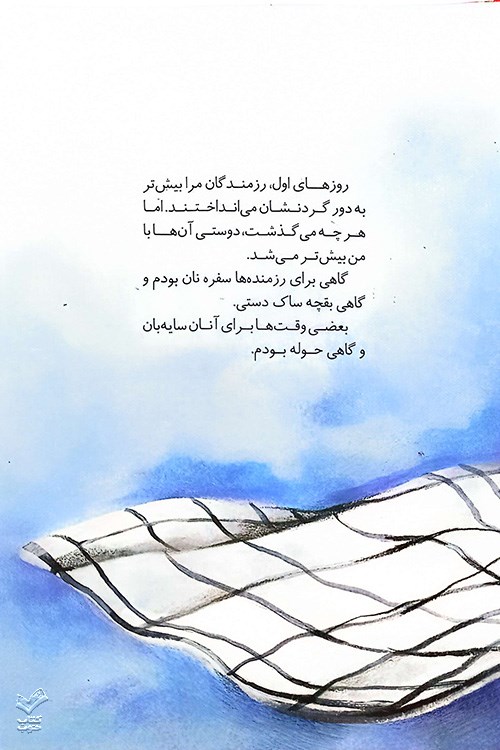 روزهای اول، رزمندگان مرا بیش‌تر
به دور گردنشان می‌انداختند. اما
هر چه می‌گذشت، دوستی آن‌ها با
من بیش‌تر می‌شد.
گاهی برای رزمنده‌ها سفره نان بودم و
گاهی بقچه ساک دستی.
بعضی وقت‌ها برای آنان سایه‌بان
و گاهی حوله بودم.
کتاب